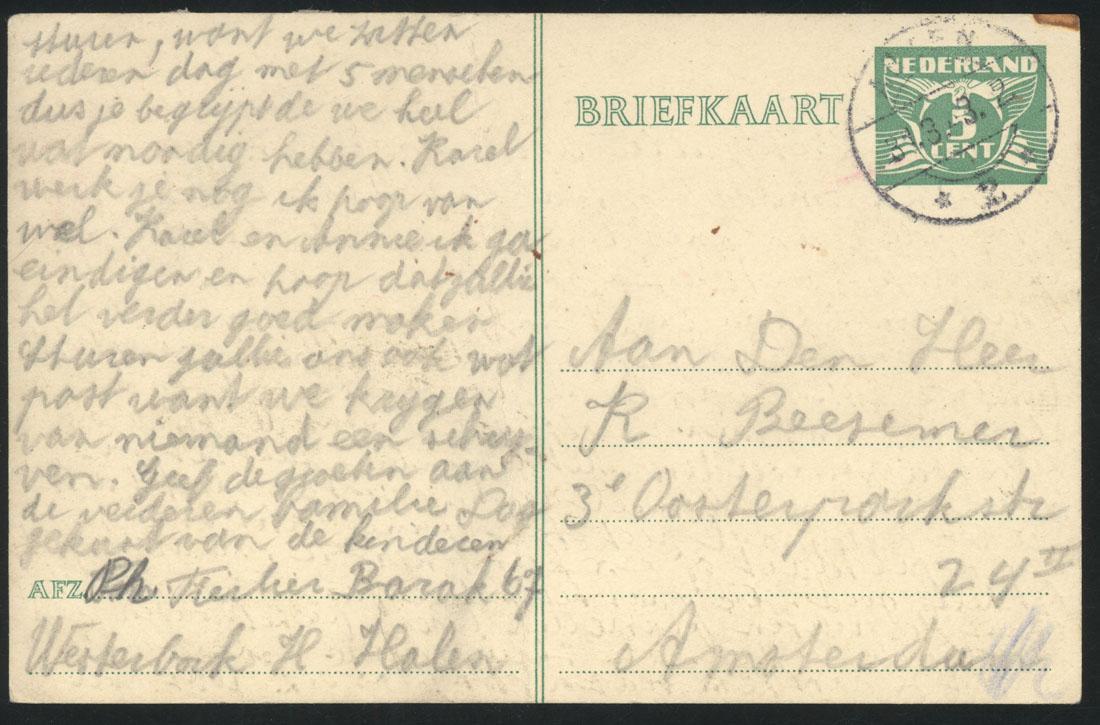 sturen, want we zitten
iederen dag met 5 menschen
dus je begrijpt de we heel
wat nordig hebben. Karel
werk je nog ik hoop van
wel. Karel en Annie ik ga
eindigen en hoop dat jullie
het verder goed maken
sturen jullie ons ook wat
post want we krygen
van niemand een schrij-
ven. Geef de groeten aan
de verderen familie Dag
gekust van de kinderen
AFZ. Ph. Fischer Barak 67
Westerbork H. Halen
BRIEFKAART
NEDERLAND
5
CENT
Aan Den Heer
K. Beesemer
3e Oosterparkstr
24 II
Amsterdam